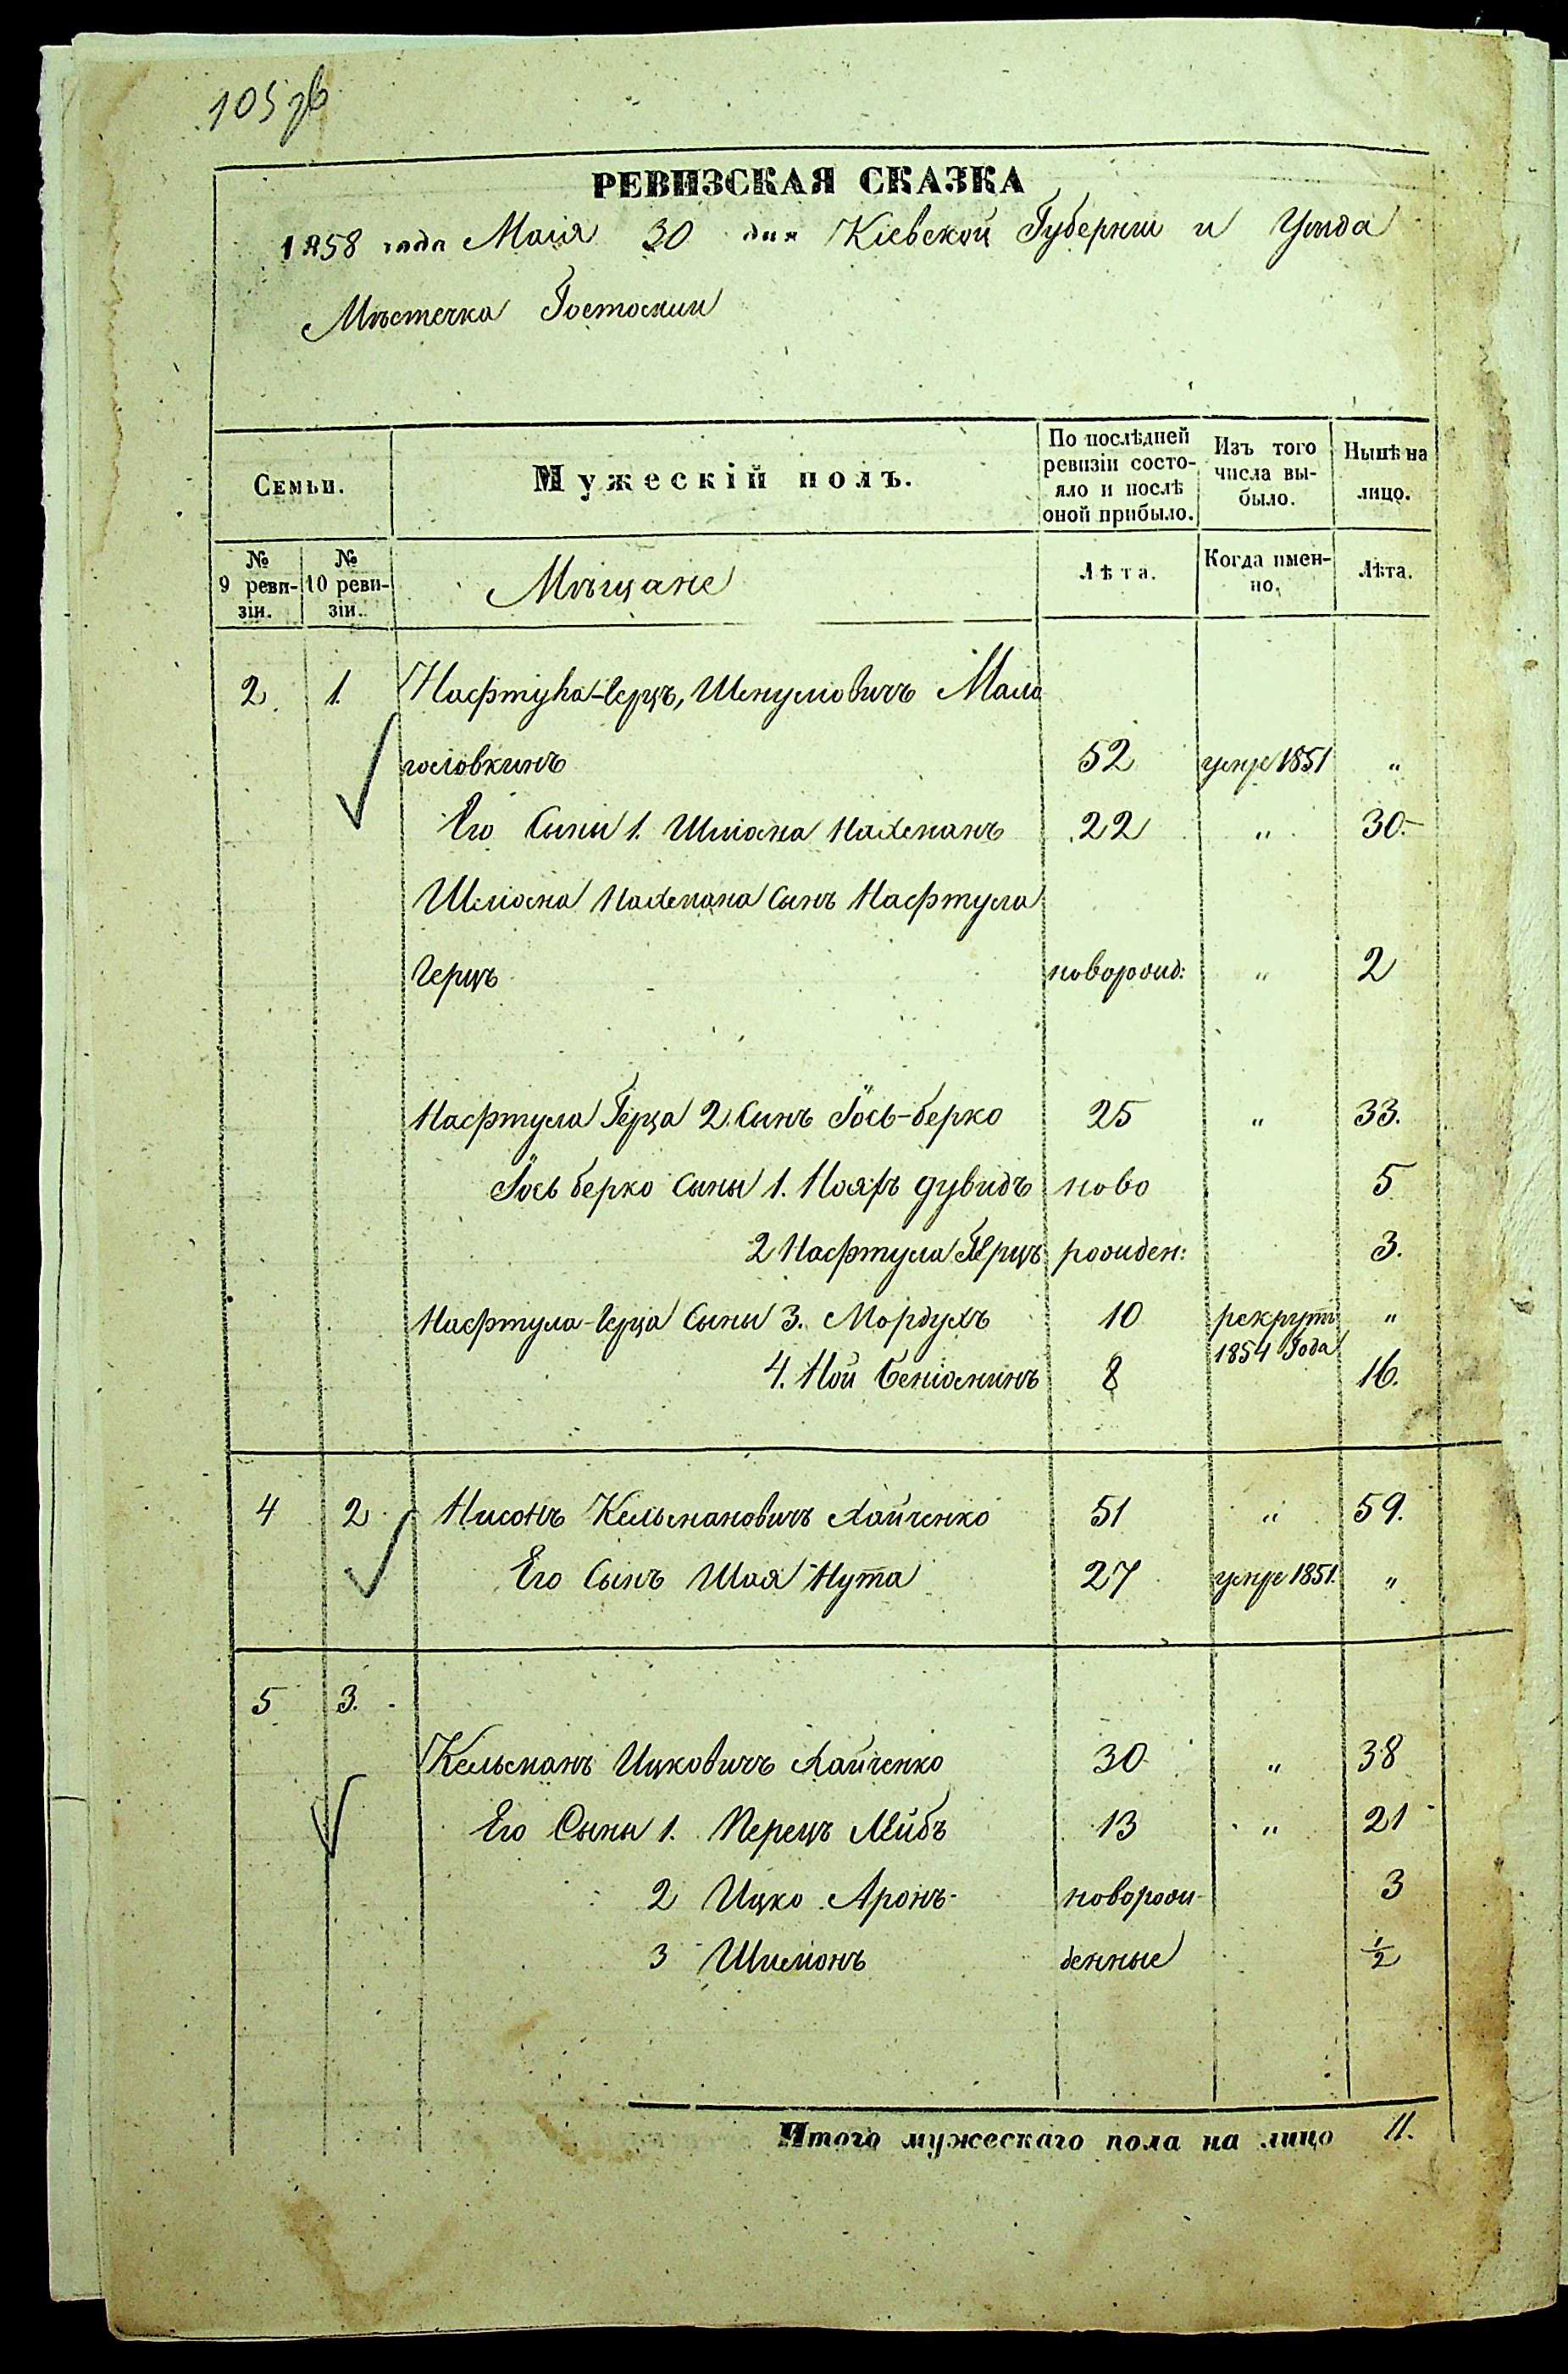 105 зв
РЕВИЗСКАЯ СКАЗКА
1858 года Маія 30 дня Кіевской Губерніи и Уѣзда
Мѣстечка Гостомли
Семьи.
Мужескій полъ.
По послѣдней ревизіи состо-
яло и послѣ оной прибыло.
Изъ того числа вы-
было.
Нынѣ на лицо.
№ 9 реви-
зіи.
№ 10 реви-
зіи.
Мѣщане
Лѣта.
Когда имен-
но.
Лѣта.
2. 1. Нафтула-Герцъ, Шмуловичъ Мало
головкинъ 52 умре 1851 „
Его Сыны 1. Шліома Нахманъ 22 „ 30.
Шліома Нахмана Сынъ Нафтула
Герцъ новорожд: „ 2
Нафтула Герца 2. Сынъ Іось-берко 25 „ 33.
Іось берко Сыны 1. дувидъ ново 5
2 Нафтула Герцъ рожден: 3.
Нафтула-Герца Сыны 3. Мордухъ 10 рекрутъ „
1854 Года
4. Ной Беніоминъ 8 16.
4 2 Нисонъ Кельмановичъ Хайченко 51 „ 59.
Его Сынъ Шая Нута 27 умре 1851. „
5 3.
Кельманъ Ицковичъ Хайченко 30 „ 38
Его Сыны 1. Перецъ Лейбъ 13 „ 21
2 Ицко Аронъ новорож- 3
3 Шимонъ денные ½
Итого мужескаго пола на лицо 11.